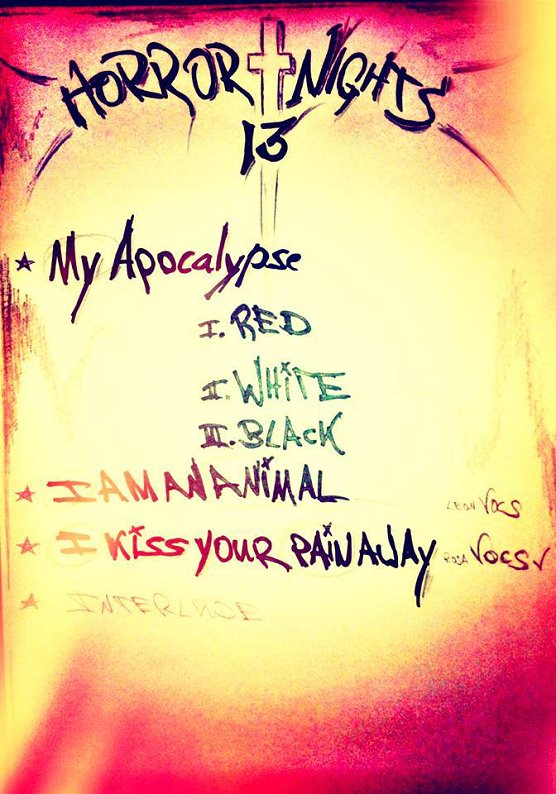 HORROR NIGHTS
13
My Apocalypse
I. RED
II. WHiTE
III. BLACK
I AM AN ANiMAL
LEON VOCS
I KiSS YOUR PAiN AWAY
VOCS
INTERLUDE